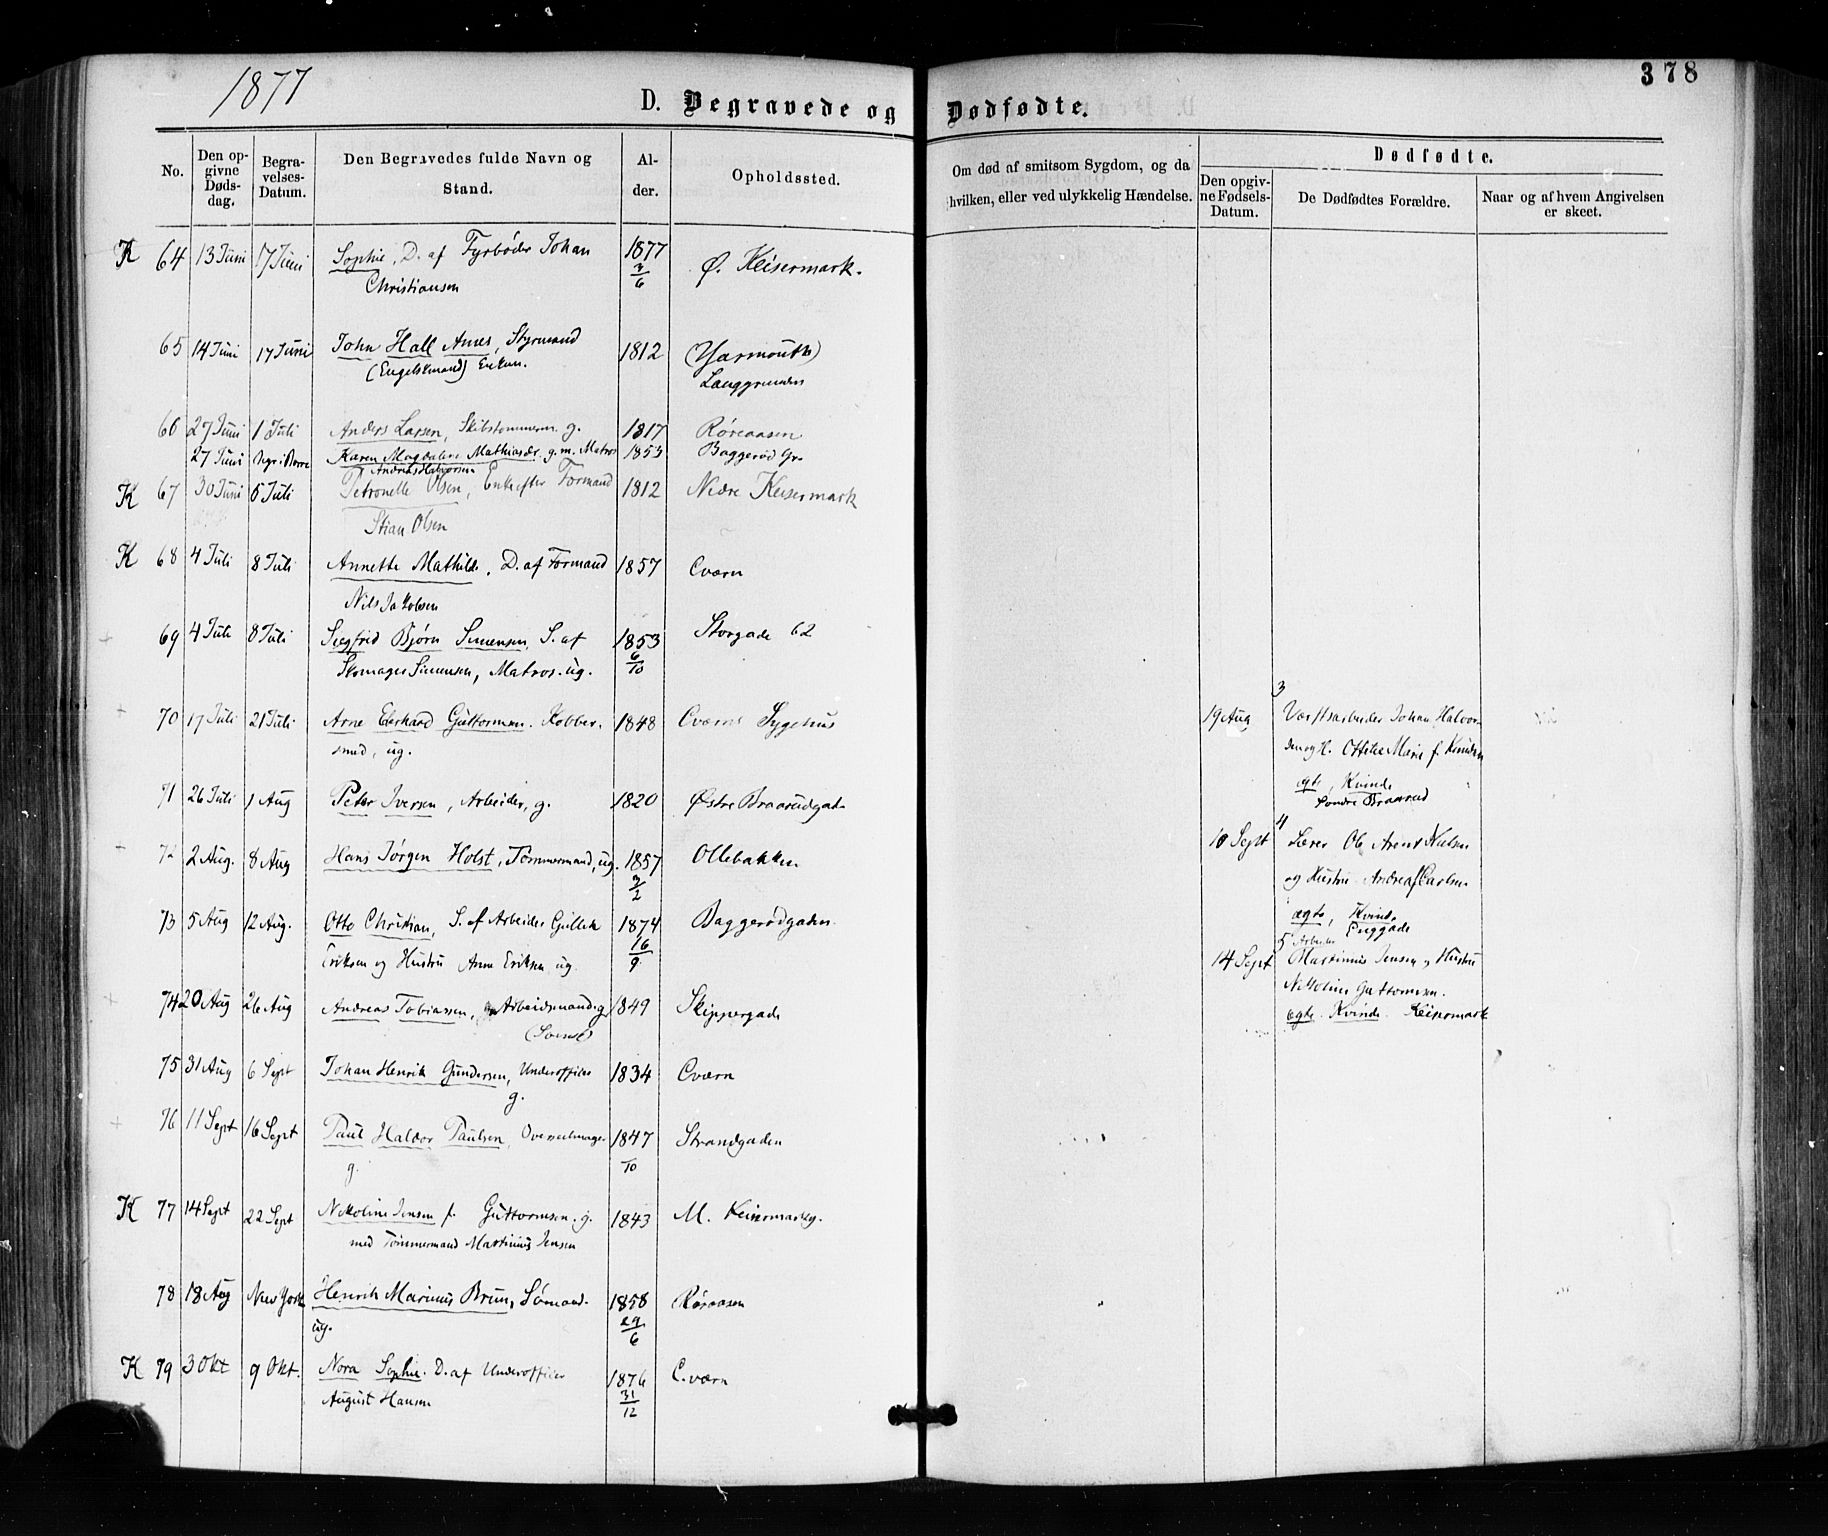 1877
378
D. Begravede og Dødfødte.
No.
Den opgivne Dødsdag.
Begravelses-Datum.
Den Begravedes fulde Navn og Stand.
Alder.
Opholdssted.
Om død af smitsom Sygdom, og da hvilken, eller ved ulykkelig Hændelse.
Dødfødte.
Den opgivne Fødsels-Datum.
De Dødfødtes Forældre.
Naar og af hvem Angivelsen er skeet.
K 64 13 Juni 17 Juni Sophie, D. af Fyrbøder Johan 1877 3/6 Ø. Keisermark.
Christiansen
65 14 Juni 17 Juni John Hall Styrmand 1812 (Yarmouth)
(Engelskmand) Enkem. Langgrunden
66 27 Juni 1 Juli Anders Larsen, Skibstømmerm. g. 1817 Røreaasen
27 Juni Karen Magdalene g. m. Matros 1853 Baggerød Gr.
Andreas Halvorsen
K 67 30 Juni 5 Juli Petronelle Olsen, Enke efter Formand 1812 Nedre Keisermark
Stian Olsen
K 68 4 Juli 8 Juli Annette Mathilde, D. af Formand 1857 Cværn
Nils Jakobsen
69 4 Juli 8 Juli Siegfrid Bjørn Simensen, S. af 1853 6/10 Storgade 62
Skomager Simensen, Matros. ug.
70 17 Juli 21 Juli Arne Eberhard Guttormsen. Kobber- 1848 Cværns Sygehus
smed, ug.
71 26 Juli 1 Aug Peter Iversen, Arbeider, g. 1820 Østre Braarudgat.
72 2 Aug. 8 Aug Hans Jørgen Holst, Tømmermand, ug. 1857 3/2 Ollebakken
73 5 Aug 12 Aug. Otto Christian, S. af Arbeider Gullik 1874 16/9 Baggerødgaden.
Eriksen og Hustru Anne Eriksen ug.
74 20 Aug 26 Aug Andreas Tobiassen, Arbeidsmand g 1849 Skippergade
75 31 Aug 6 Sept Johan Henrik Gundersen, Underofficer 1834 Cværn
g.
76 11 Sept 16 Sept Paul Haldor Paulsen, 1847 /10 Strandgaden
g.
K 77 14 Sept 22 Sept Nikoline Jensen f. Guttormsen. g. 1843 M. Keisemarkg.
med Tømmermand Martinius Jensen
78 18 Aug New York Henrik Marinius Brun, Sømand. 1858 29/6 Røraasen
ug.
K 79 3 Okt 9 Okt. Nora Sophie. D. af Underofficer 1876 31/12 Cværn
August Hansen
3
19 Aug Værftsarbeider Johan Halvor-
sen og H. Ottilie Marie f. Knudsen
ægte, Kvinde
Søndre Braarud
4
10 Sept Lærer Ole Arent Nielsen
og Hustru Andrea f. Carlsen
ægte, Kvinde
Enggade
5 Arbeider
14 Sept Martinius Jensen og Hustru
Nikoline Guttormsen.
ægte. Kvinde. Keisemark